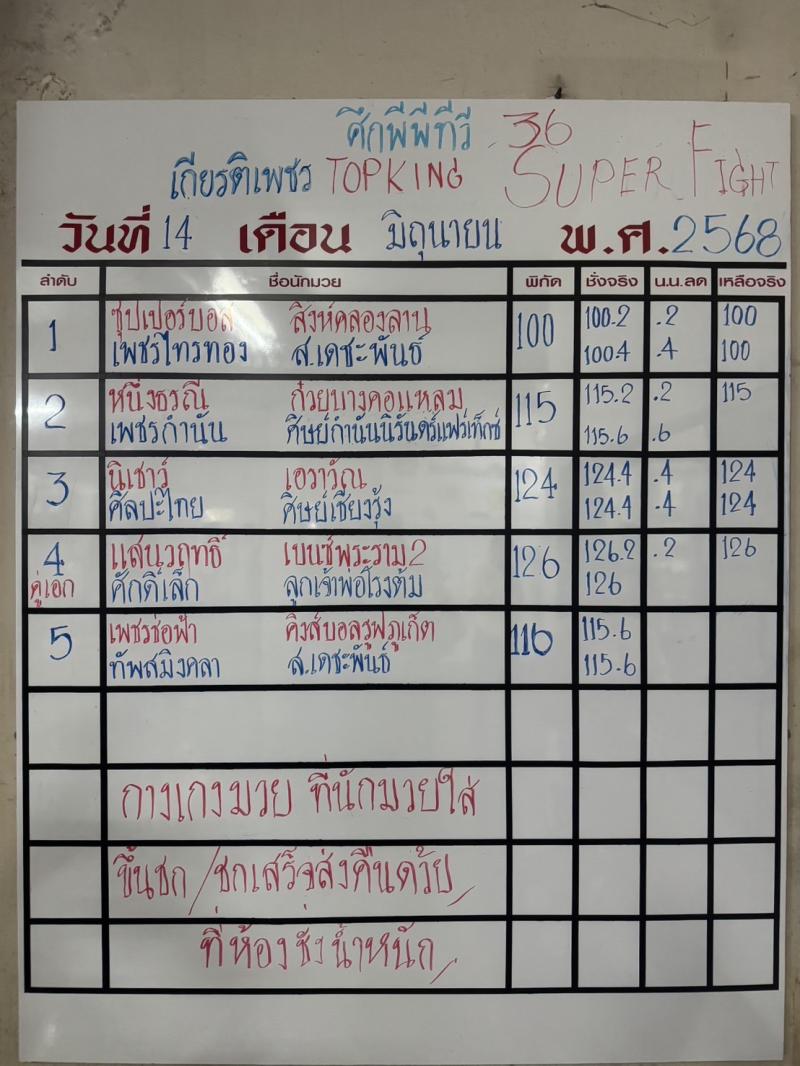 ศึกพีพีทีวี 36
เกียรติเพชร TOPKING SUPER FIGHT
วันที่ 14 เดือน มิถุนายน พ.ศ. 2568
ลำดับ ชื่อนักมวย พิกัด ชั่งจริง น.น.ลด เหลือจริง
1 ซุปเปอร์บอล สิงห์คลองลาน 100 100.2 .2 100
เพชรไทรทอง ส.เดชะพันธ์ 100.4 .4 100
2 หนึ่งธรณี ก๋วยบางคอแหลม 115 115.2 .2 115
เพชรกำนัน ศิษย์กำนันนิรันดร์แฟร์เท็กซ์ 115.6 .6
3 นิเชาว์ เอราวัณ 124 124.4 .4 124
ศิลปะไทย ศิษย์เชียงรุ้ง 124.4 .4 124
4 แสนวฤทธิ์ เบนซ์พระราม2 126 126.2 .2 126
คู่เอก ศักดิ์เล็ก ลูกเจ้าพ่อโรงต้ม 126
5 เพชรช่อฟ้า คิงส์บอลรูฟภูเก็ต 116 115.6
ทัพสมิงคลา ส.เดชะพันธ์ 115.6
กางเกงมวย ที่นักมวยใส่
ขึ้นชก / ชกเสร็จส่งคืนด้วย
ที่ห้องชั่งน้ำหนัก